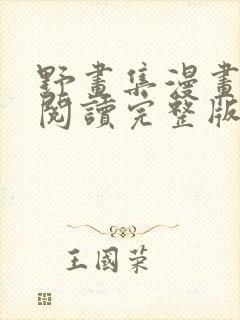 野畫集漫畫
閱讀完整版
王國榮